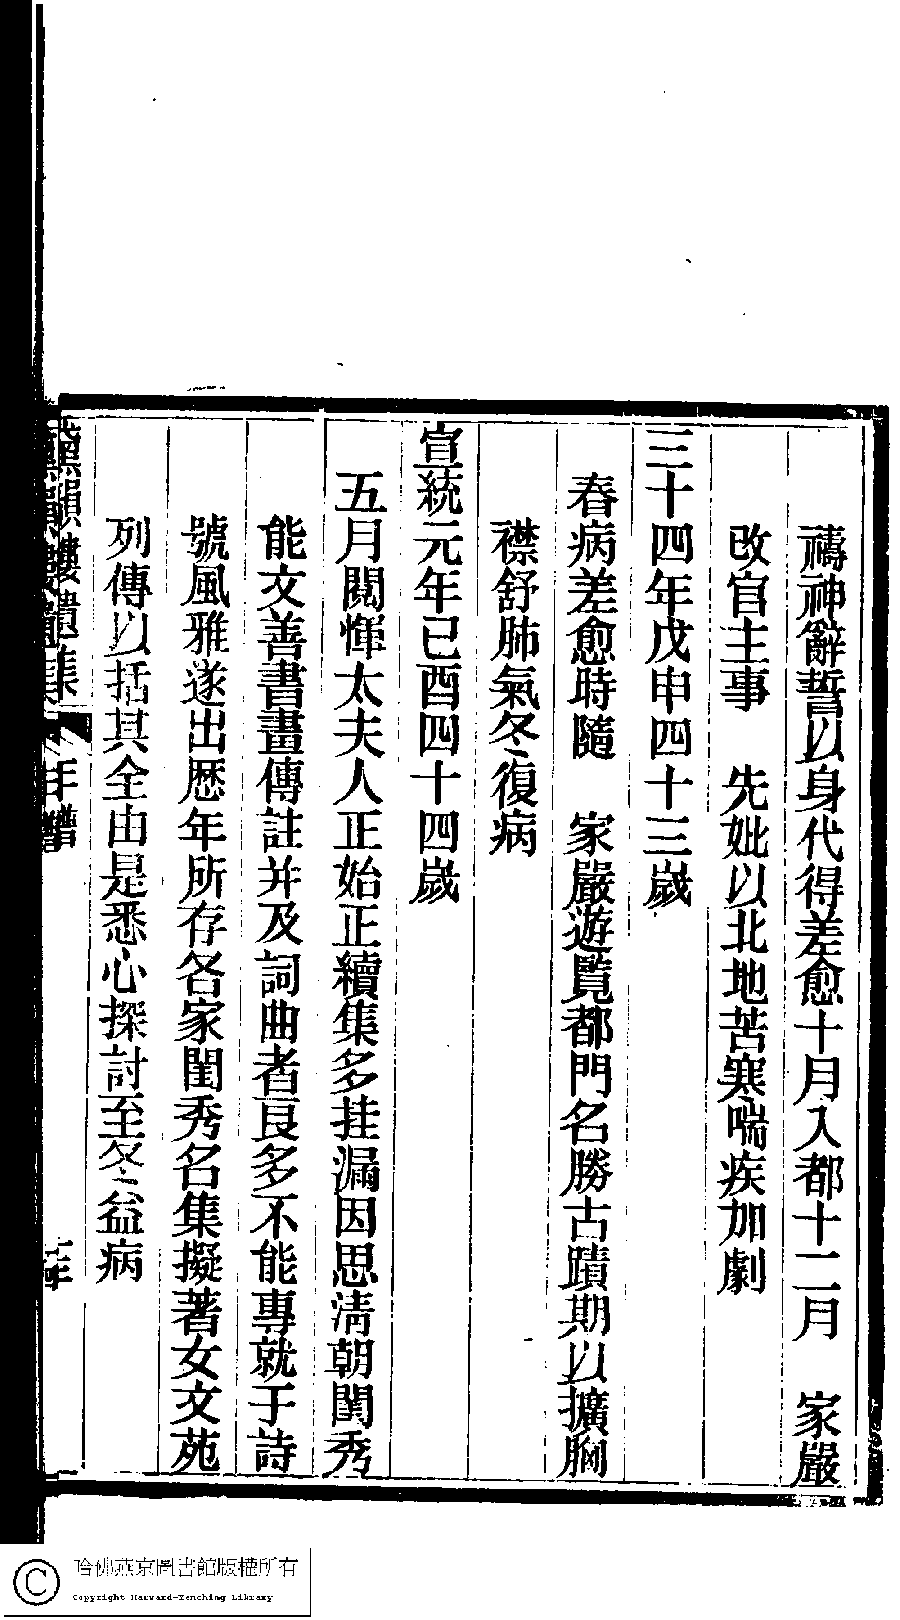 禱神辭誓以身代得差愈十月入都十二月　家嚴
改官主事　先妣以北地苦寒喘疾加劇
三十四年戊申四十三歲
春病差愈時隨　家嚴遊覧都門名勝古蹟期以擴胸
襟舒肺氣冬復病
宣統元年己酉四十四歲
五月閱惲太夫人正始正續集多挂漏因思淸朝閨秀
能文善書畫傳註并及詞曲者良多不能專就于詩
號風雅遂出歷年所存各家閨秀名集擬著女文苑
列傳以括其全由是悉心探討至冬益病
年譜
哈佛燕京圖書館版權所有
Copyright Harvard-Yenching Library